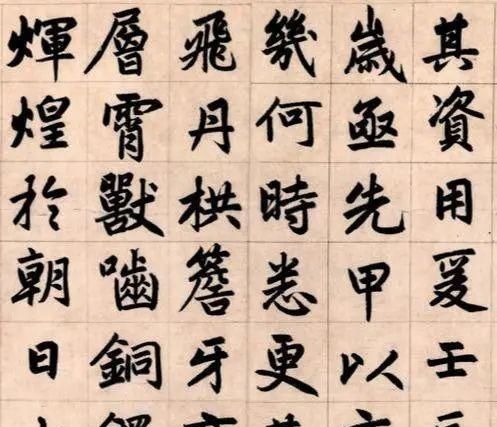 其資用爰壬
歲亟先甲以
幾何時悉更
飛丹栱簷牙
層霄獸嚙銅
煇煌於朝日